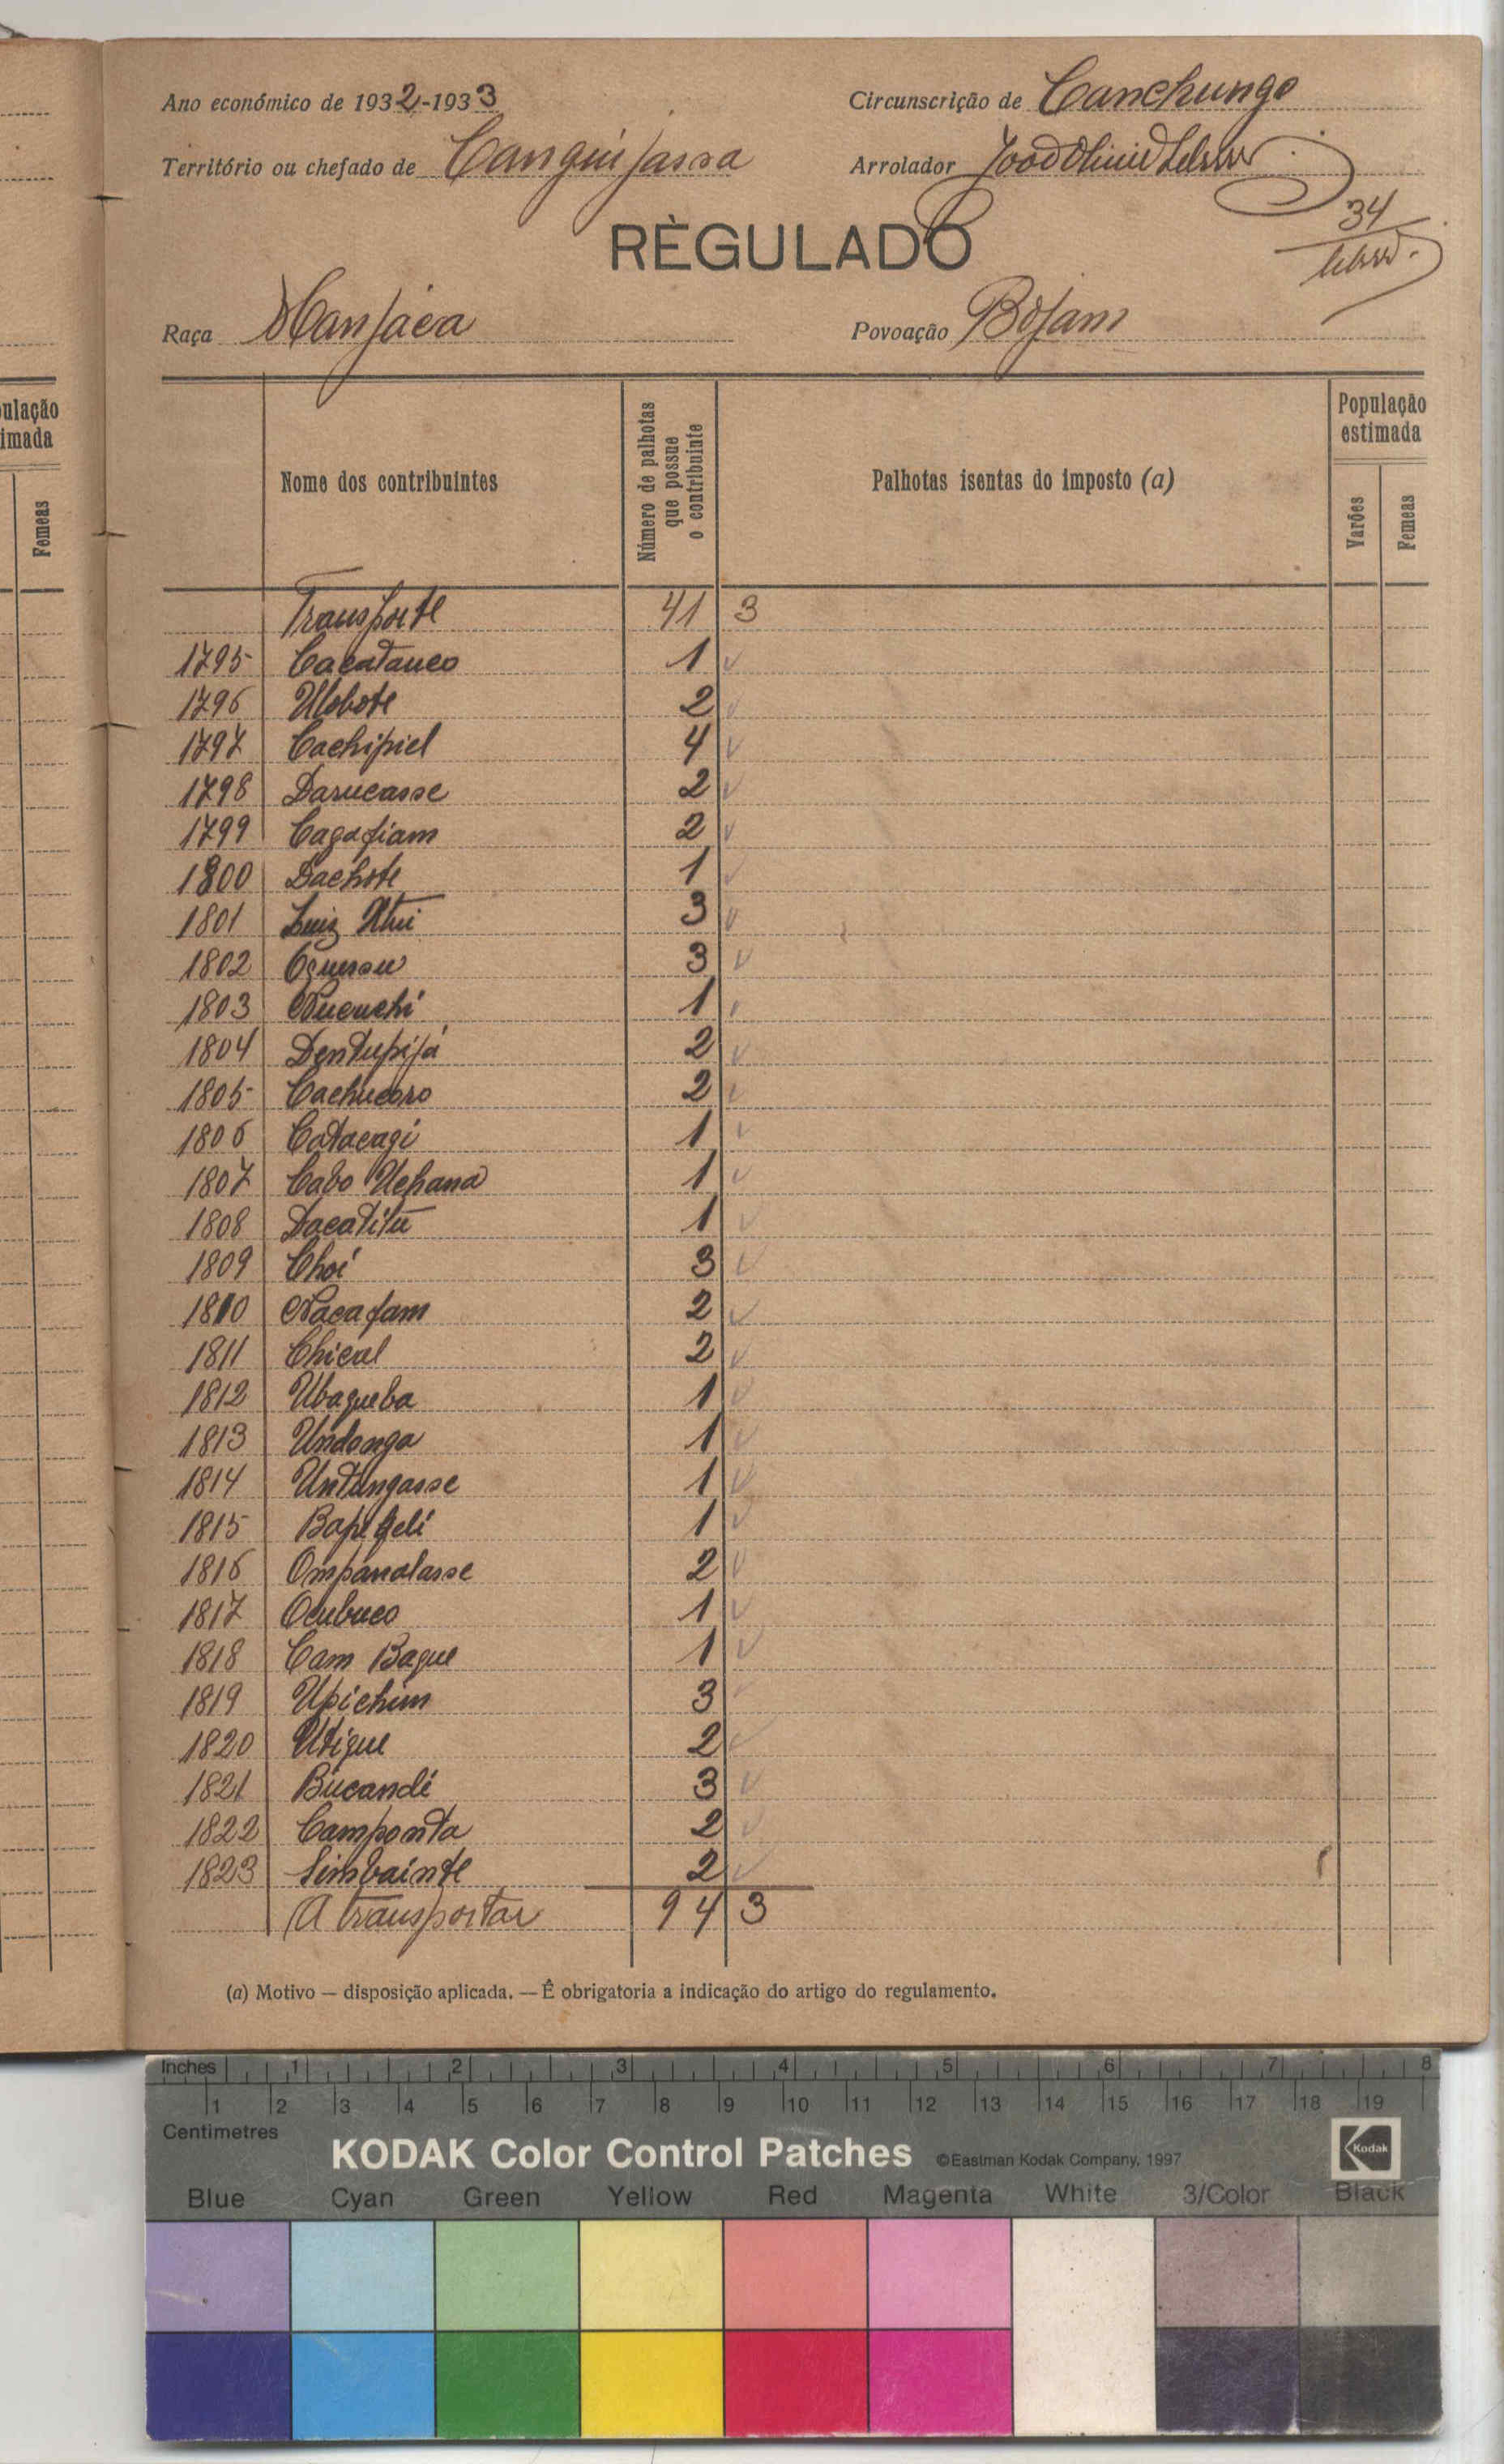 Ano económico de 1932-1933
Circunscrição de Canchungo
Território ou chefado de Canguijassa
Arrolador
34
RÈGULADO
Raça Manjáca
Povoação Bojam
ulação
imada
Femeas
Nome dos contribuintes
Número de palhotas
que possue
o contribuinte
Palhotas isentas do imposto (a)
População
estimada
Varões
Femeas
Transporte 41 3
1795 Cacatanco 1
1796 Ulobote 2
1797 Cachipiel 4
1798 Darucasse 2
1799 Cagafiam 2
1800 Dachote 1
1801 Luiz 3
1802 3
1803 1
1804 Dentupijá 2
1805 Cachucoro 2
1806 Catacagi 1
1807 Cabo 1
1808 Dacatitú 1
1809 Choi 3
1810 Nacafam 2
1811 Chical 2
1812 Ubagueba 1
1813 Undonga 1
1814 Untungasse 1
1815 1
1816 Ompanalasse 2
1817 Ocubuco 1
1818 Cam Bague 1
1819 Upichim 3
1820 Utique 2
1821 Bucandé 3
1822 Camponta 2
1823 Simbainte 2
A transportar 94 3
(a) Motivo — disposição aplicada. — Ê obrigatoria a indicação do artigo do regulamento.
Inches 1 2 3 4 5 6 7 8
1 2 3 4 5 6 7 8 9 10 11 12 13 14 15 16 17 18 19
Centimetres
KODAK Color Control Patches ©Eastman Kodak Company, 1997 Kodak
Blue Cyan Green Yellow Red Magenta White 3/Color Black